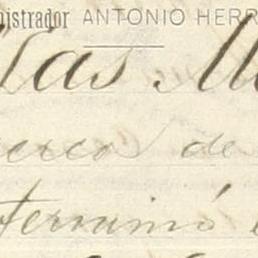 nistrador ANTONIO HERR
las M
cerca de
terminó